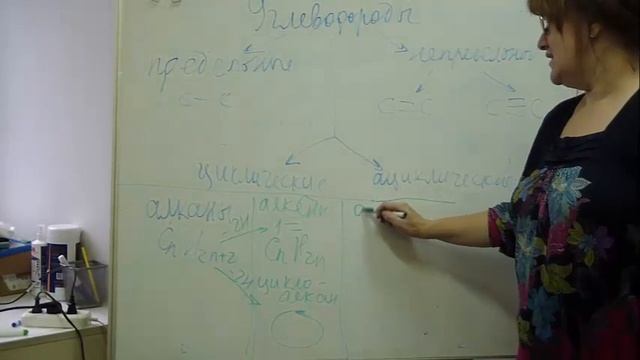 Углеводороды
предельные непредельные
C – C C = C C ≡ C
циклические ациклические
алканы алкены а
CnH2n+2 -2H 1 =
CnH2n
-2H цикло-
алкан